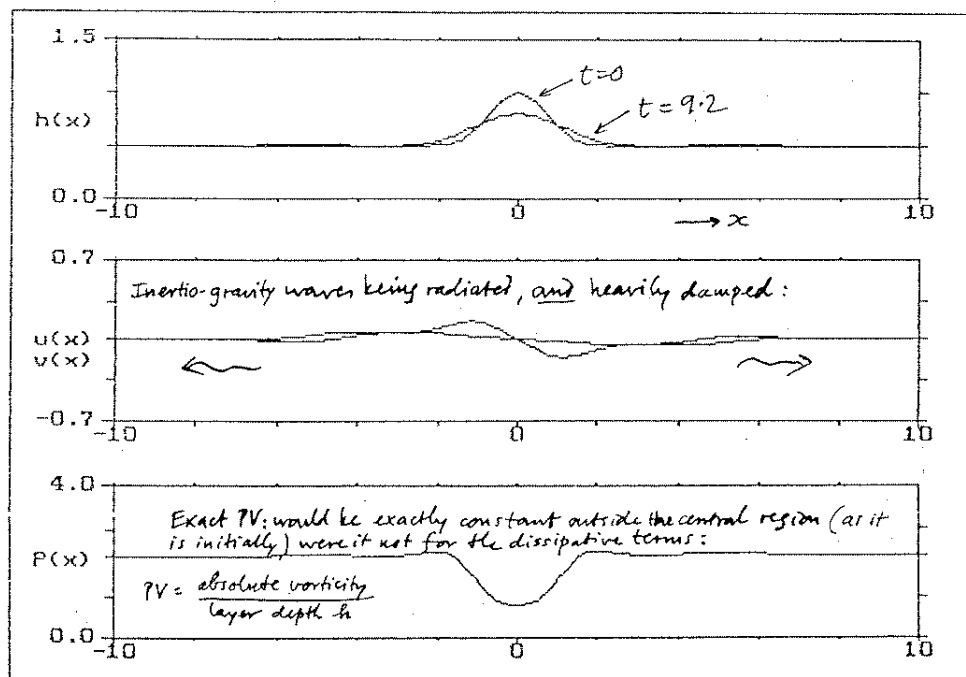 1.5
t=0
t = 9.2
h(x)
0.0
-10 0 → x 10
0.7
Inertio-gravity waves being radiated, and heavily damped:
u(x)
v(x)
-0.7
-10 0 10
4.0
Exact PV: would be exactly constant outside the central region (as it
is initially) were it not for the dissipative terms:
P(x)
PV = absolute vorticity
layer depth h
0.0
-10 0 10